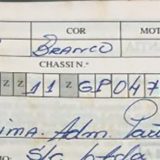 COR MOT
BRANCO
CHASSI N.º
Z Z 11 Z GP 047
ima. Adm.
S/C